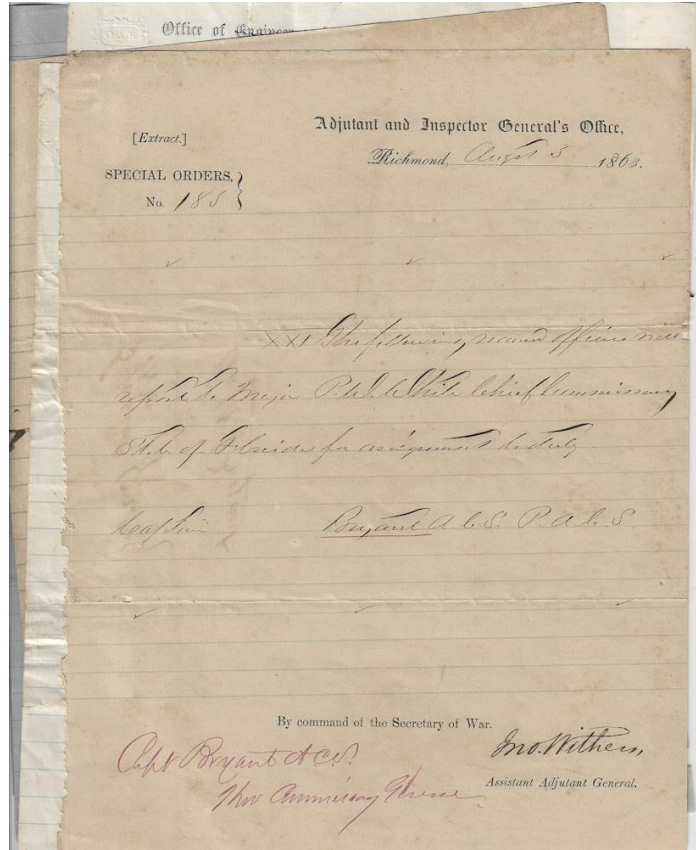 Office of Engineer
Adjutant and Inspector General's Office,
[Extract.]
Richmond, Augt 5 1863.
SPECIAL ORDERS,
No. 185
XXI The following named officer will
report to Major P. W. White Chief Commissary
State of Florida for assignment to duty
Captain Bryant A. C. S. P. A. C. S.
By command of the Secretary of War.
Jno. Withers,
Assistant Adjutant General.
Capt Bryant A C S
Thro Commissary